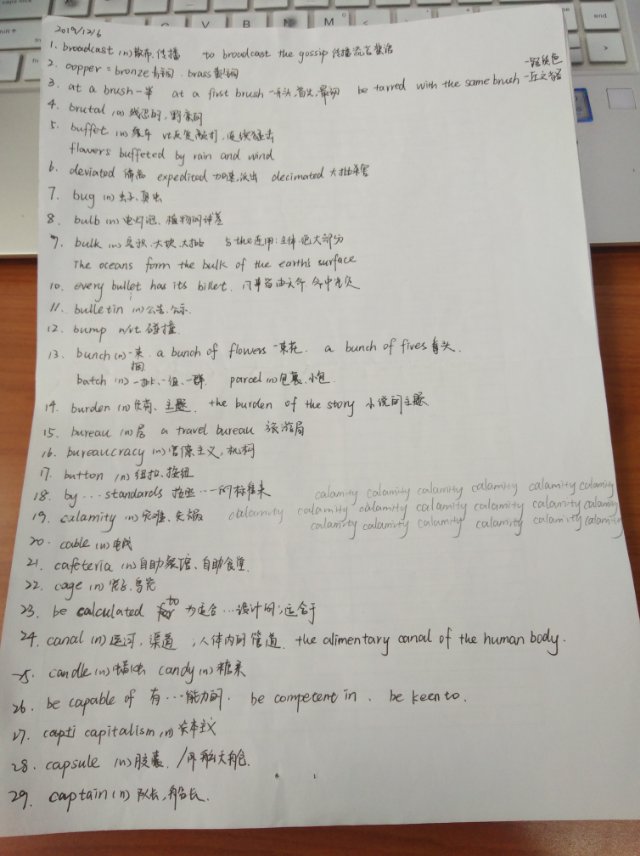 2019/12/6
1. broadcast (n) 散布、传播 to broadcast the gossip 传播流言蜚语
2. copper = bronze 青铜. brass 黄铜
3. at a brush 一举 at a first brush 一开头,首先,最初 be tarred with the same brush 一丘之貉
4. brutal (n) 残忍的,野蛮的
5. buffet (n) 餐车 vt. 反复敲打,连续猛击
flowers buffeted by rain and wind
6. deviated expedited 加速,派出 decimated 大批杀害
7. bug (n) 虫子、臭虫
8. bulb (n) 电灯泡、植物的球茎
9. bulk (n) 大块,大批 与the连用:主体,绝大部分
The oceans form the bulk of the earth's surface
10. every bullet has its billet.
11. bulletin (n) 公告,公示
12. bump n/vt. 碰撞
13. bunch (n) 一束, a bunch of flowers 一束花. a bunch of fives 拳头.
捆
batch (n) 一批、一组、一群 parcel (n) 包裹、小包
14. burden (n) 负荷、主题. the burden of the story 小说的主题
15. bureau (n) 局 a travel bureau 旅游局
16. bureaucracy (n) 官僚主义, 机构
17. button (n) 纽扣、按钮
18. by ... standards 按照…的标准来 calamity calamity calamity calamity calamity calamity
19. calamity (n) 灾难、灾祸 calamity calamity calamity calamity calamity calamity calamity
calamity calamity calamity calamity calamity calamity
20. cable (n) 电线
21. cafeteria (n) 自助餐馆、自助食堂
22. cage (n) 笼、鸟笼
to
23. be calculated for 为适合…设计的;适合于
24. canal (n) 运河, 渠道, 人体内的管道. the alimentary canal of the human body.
25. candle (n) 蜡烛 candy (n) 糖果
26. be capable of 有…能力的. be competent in. be keen to.
27. capti capitalism (n) 资本主义
28. capsule (n) 胶囊.
29. captain (n) 队长,船长.